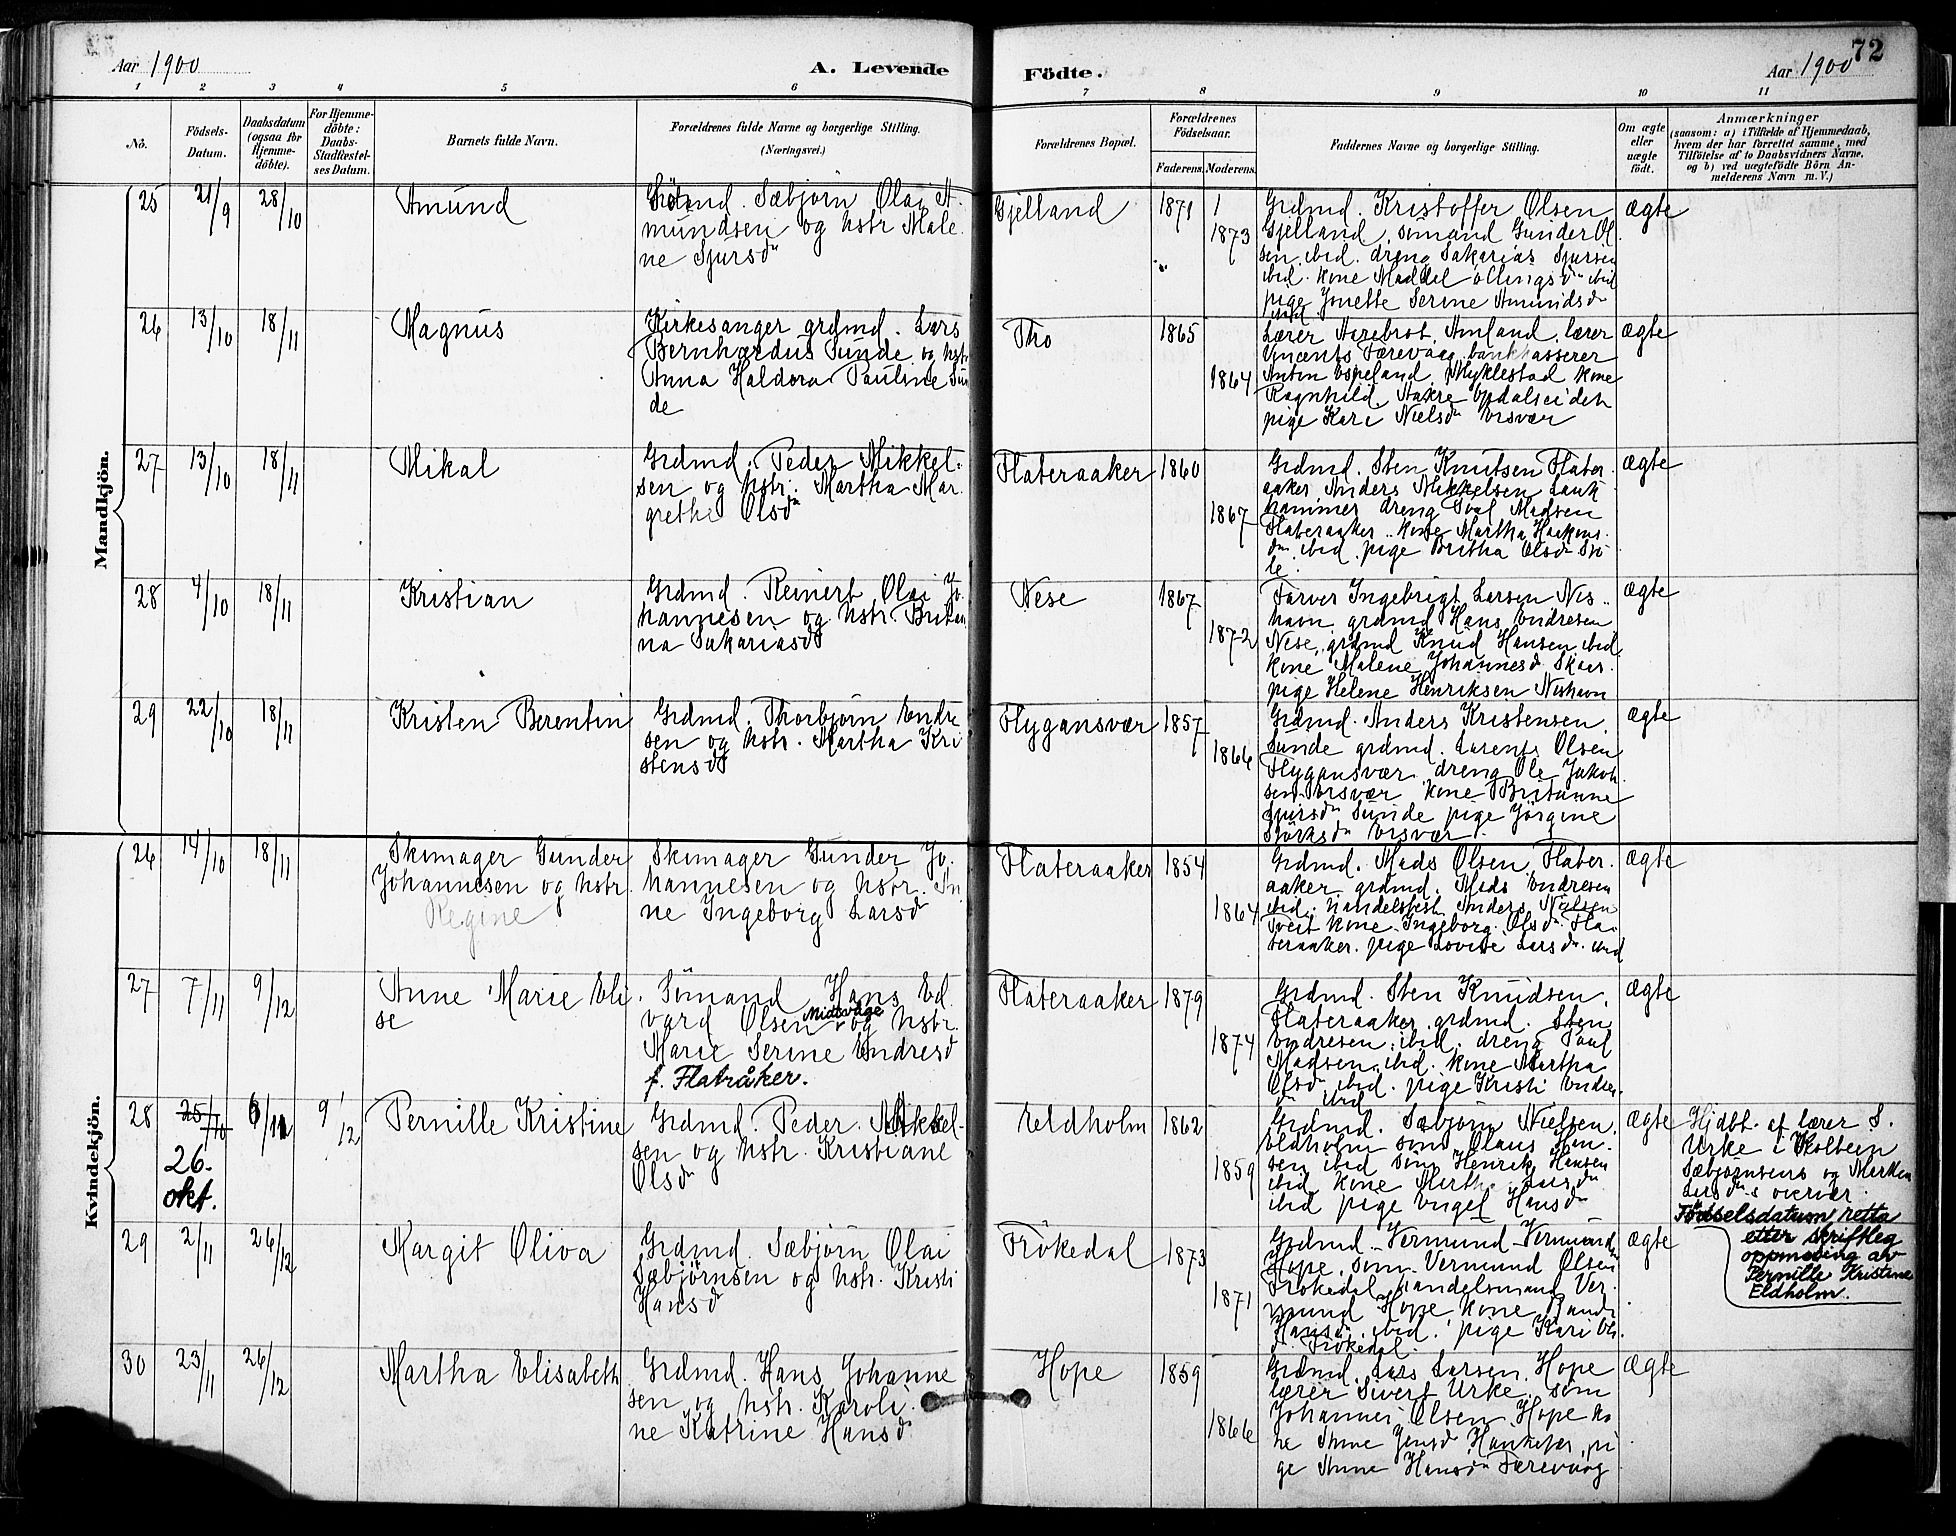 Aar 1900
A. Levende
Födte.
Aar 1900
72
1 2 3 4 5 6 7 8 9 10 11
No.
Födsels-
Datum.
Daabsdatum
(ogsaa for
Hjemme-
döbte).
For Hjemme-
döbte:
Daabs-
Stadfæstel-
ses Datum.
Barnets fulde Navn.
Forældrenes fulde Navne og borgerlige Stilling.
(Næringsvei.)
Forældrenes Bopæl.
Forældrenes
Födselsaar.
Faderens. Moderens.
Faddernes Navne og borgerlige Stilling.
Om ægte
eller
uægte
födt.
Anmærkninger
(saasom: a) i Tilfælde af Hjemmedaab,
hvem der har forrettet samme, med
Tilföielse af to Daabsvidners Navne,
og b) ved uægtefödte Börn An-
melderens Navn m. V.)
Mandkjön.
25 21/9 28/10 Amund
Sæbjörn Olai A.
mundsen og hstr Male
ne Sjursd
Gjelland 1871
1873
Grdmd. Kristoffer Olsen
Gjelland, sömand Gunder Ol
sen ibid. dreng Sakarias Sjursen
ibid. kone
pige Jonette Serine Amundsd
ibid.
ægte
26 13/10 18/11 Magnus
Kirkesanger grdmd. Lars
Bernhardus Sunde og hstr
Anna Haldora Pauline Sun
de
Tho 1865
1864
Lærer Aarebrot, Amland, lærer
Færevaag, bankkasserer
Anton Espeland, Myklestad kone
Ragnhild Aakre
pige Kari Nielsd
ægte
27 13/10 18/11 Mikal
Grdmd. Peder Mikkel.
sen og hstr. Martha Mar.
grethe Olsd
Flateraaker 1860
1867
Grdmd. Sten Knutsen Flater.
aaker, Anders Mikkelsen Lauk
hammer dreng Paul Madsen
Flateraaker kone Martha Haakons
d ibid. pige Britha Olsd Stö
le.
ægte
28 4/10 18/11 Kristian
Grdmd. Reinert Olai Jo
hannesen og hstr. Britan
na Sakariasd
Nese 1867
1872
Farver Ingebrigt Larsen Nes
havn, grdmd Hans Endresen
Nese, grdmd Knud Hansen ibid
kone Malene Johannesd Skaar.
pige Helene Henriksen Neshavn
ægte
29 22/10 18/11 Kristen Berentin
Grdmd. Thorbjörn Endre
sen og hstr. Martha Kri
stensd
Flygansvær 1857
1866
Grdmd. Anders Kristensen
Sunde grdmd. Larents Olsen
Flygansvær dreng Ole Jakob
sen kone Britanne
Sjursd Sunde pige Jörgine
ægte
Kvindekjön.
26 14/10 18/11 Skomager Gunder
Johannesen og hstr.
Regine
Skomager Gunder Jo.
hannesen og hstr. An
ne Ingeborg Larsd
Flateraaker 1854
1864
Grdmd. Mads Olsen, Flater.
aaker, grdmd. Mads Endresen
ibid. handelsbest. Anders Nielsen
Tveit kone Ingeborg Olsd Fla
teraaker. pige Lovise Larsd ibid
ægte
27 7/11 9/12 Anne Marie Eli
se
Sömand Hans Ed.
vard Olsen Midtvåge og hstr.
Marie Serine Endresd
f. Flatråker.
Flateraaker 1879
1874
Grdmd. Sten Knudsen,
Flateraaker, grdmd. Sten
Endresen ibid. dreng Paul
Madsen ibid. kone Martha
Olsd ibid. pige Kristi Endres.
d ibid
ægte
28 25/10 6/11 9/12 Pernille Kristine
26.
okt.
Grdmd. Peder Mikkel-
sen og hstr. Kristiane
Olsd
Eldholm 1862
1859
Grdmd. Sæbjörn Nielsen,
Eldholm söm Olaus Han.
sen ibid söm Henrik Hansen
ibid kone Marthe Larsd
ibid pige Engel Hansd
ægte
Hjdbt. af lærer S.
Urke i Kolbein
Sæbjörnsens og
Larsd's overvær.
Fødselsdatum retta
etter skriftleg
oppmoding av
Pernille Kristine
Eldholm.
29 2/11 26/12 Margit Oliva
Grdmd. Sæbjörn Olai
Sæbjörnsen og hstr. Kristi
Hansd
Frökedal 1873
1871
Grdmd Vermund Vermund
Hope, söm Vermund Olsen
Frökedal handelsmand Ver.
mund Hope kone Randi
Hansd ibid. pige Kari Ols.
d Frökedal.
ægte
30 23/11 26/12 Martha Elisabeth
Grdmd. Hans Johanne
sen og hstr. Karoli.
ne Katrine Hansd
Hope 1859
1866
Grdmd. Lars Larsen Hope
lærer Sivert Urke, söm
Johannes Olsen Hope ko
ne Anne Jensd pi
ge Anne Hansd Færevaag
ægte